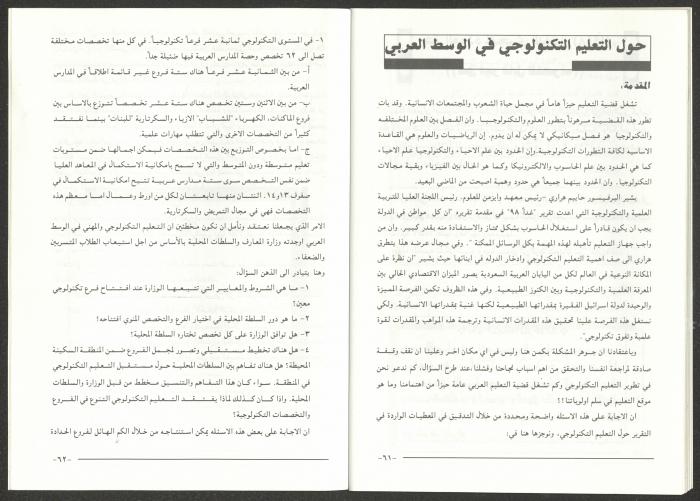 حول التعليم التكنولوجي في الوسط العربي
المقدمة،
تشغل قضية التعليم حيزاً هاماً في مجمل حياة الشعوب والمجتمعات الانسانية. وقد بات
تطور هذه القضية مرهوناً بتطور العلوم والتكنولوجيا. وان الفصل بين العلوم المختلفة
والتكنولوجيا هو فصل ميكانيكي لا يمكن له ان يدوم. إن الرياضيات والعلوم هي القاعدة
الاساسيه لكافة التطورات التكنولوجية. وإن الحدود بين علم الاحياء والتكنولوجيا علم الاحياء
كما هي الحدود بين علم الحاسوب والالكترونيكا وكما هو الحال بين الفيزياء وبقية مجالات
التكنولوجيا. وان الحدود بينهما جميعاً هي حدود وهمية اصبحت من الماضي البعيد.
يشير البرفيسور حاييم هراري -رئيس معهد وايزمن للعلوم. رئيس اللجنة العليا للتربية
العلمية والتكنولوجية التي اعدت تقرير "غداً ٩٨" في مقدمة تقريره "ان كل مواطن في الدولة
يجب ان يكون قادراً على استغلال الحاسوب بشكل ممتاز والاستفادة منه بقدر كبير. وان من
واجب جهاز التعليم تأهيله لهذه المهمة بكل الوسائل الممكنة". وفي مجال عرضه هذا يتطرق
هراري الى صف اهمية التعليم التكنولوجي وادخار الدوله في ابنائها حيث يشير "ان نظرة على
المكانة النوعية في العالم لكل من اليابان العربية السعودية بصور الميزان الاقتصادي الحالي بين
المعرفة العلمية والتكنولوجية وبين الكنوز الطبيعية. وفي هذه الظروف تكمن الفرصة المميزة
والوحيدة لدولة اسرائيل الفقيرة بمقدراتها الطبيعية لكنها غنية بمقدراتها الانسانيه. ولكي
نستغل هذه الفرصة علينا تحقيق هذه المقدرات الانسانية وترجمة هذه المواهب والمقدرات لقوة
علمية وتفوق تكنولوجي".
وباعتقادنا ان جوهر المشكلة يكمن هنا وليس في اي مكان اخر وعلينا ان نقف وقفة
صادقة لمراجعة انفسنا والتحقق من اهم اسباب نجاحنا وفشلنا،عند طرح السؤال، كم ندعو نحن
في تطوير التعليم التكنولوجي وكم تشغل قضية التعليم العربي عامة حيزاً من اهتمامنا وما هو
موقع التعليم في سلم اولوياتنا!!
ان الاجابة على هذه الاسئله واضحة ومحددة من خلال التدقيق في المعطيات الواردة في
التقرير حول التعليم التكنولوجي، ونوجزها هنا في:
-٦١-
١- في المستوى التكنولوجي ثمانية عشر فرعاً تكنولوجياً. في كل منها تخصصات مختلفة
تصل الى ٦٢ تخصص وحصة المدارس العربية فيها ضئيلة جداً.
أ- من بين الثمانية عشر فرعاً هناك ستة فروع غير قائمة اطلاقاً في المدارس
العربية.
ب- من بين الاثنين وستين تخصص هناك ستة عشر تخصصاً تتوزع بالاساس بين
فروع الماكنات، الكهرباء "للشباب" الازياء والسكرتارية "للبنات" بينما نفتقد
كثيراً من التخصصات الاخرى والتي تتطلب مهارات علمية.
ج- اما بخصوص التوزيع بين هذه التخصصات فيمكن اجمالها ضمن مستويات
تعليم متوسطة ودون المتوسط والتي لا تسمح بامكانية الاستكمال في المعاهد العليا
ضمن نفس التخصص سوى ستة مدارس عربية تتيح امكانية الاستكمال في
صفوف ١٣و١٤. اثنتان منها تابعتان لكل من اورط وعمال اما معظم هذه
التخصصات فهي في مجال التمريض والسكرتارية.
الامر الذي يجعلنا نعتقد ونأمل ان نكون مخطئين ان التعليم التكنولوجي والمهني في الوسط
العربي اوجدته وزارة المعارف والسلطات المحلية بالأساس من اجل استيعاب الطلاب المتسربين
والضعفاء.
وهنا يتبادر الى الذهن السؤال:
١- ما هي الشروط والمعايير التي تتبعها الوزارة عند افتتاح فرع تكنولوجي
معين؟
٢- ما هو دور السلطة المحلية في اختيار الفرع والتخصص المنوي افتتاحه؟
٣- هل توافق الوزارة على كل تخصص تختاره السلطة المحلية؟
٤- هل هناك تخطيط مستقبلي وتصور لجمل الفروع ضمن المنطقة السكنية
المحيطة؟ هل هناك تفاهم بين السلطات المحلية حول مستقبل التعليم التكنولوجي
في المنطقة. سواء كان هذا التفاهم والتنسيق مخطط من قبل الوزارة والسلطات
المحلية. واذا كان كذلك لماذا يفتقد التعليم التكنولوجي التنوع في الفروع
والتخصصات التكنولوجية؟
ان الاجابة على بعض هذه الاسئله يمكن استنتاجه من خلال الكم الهائل لفروع الحدادة
-٦٢-